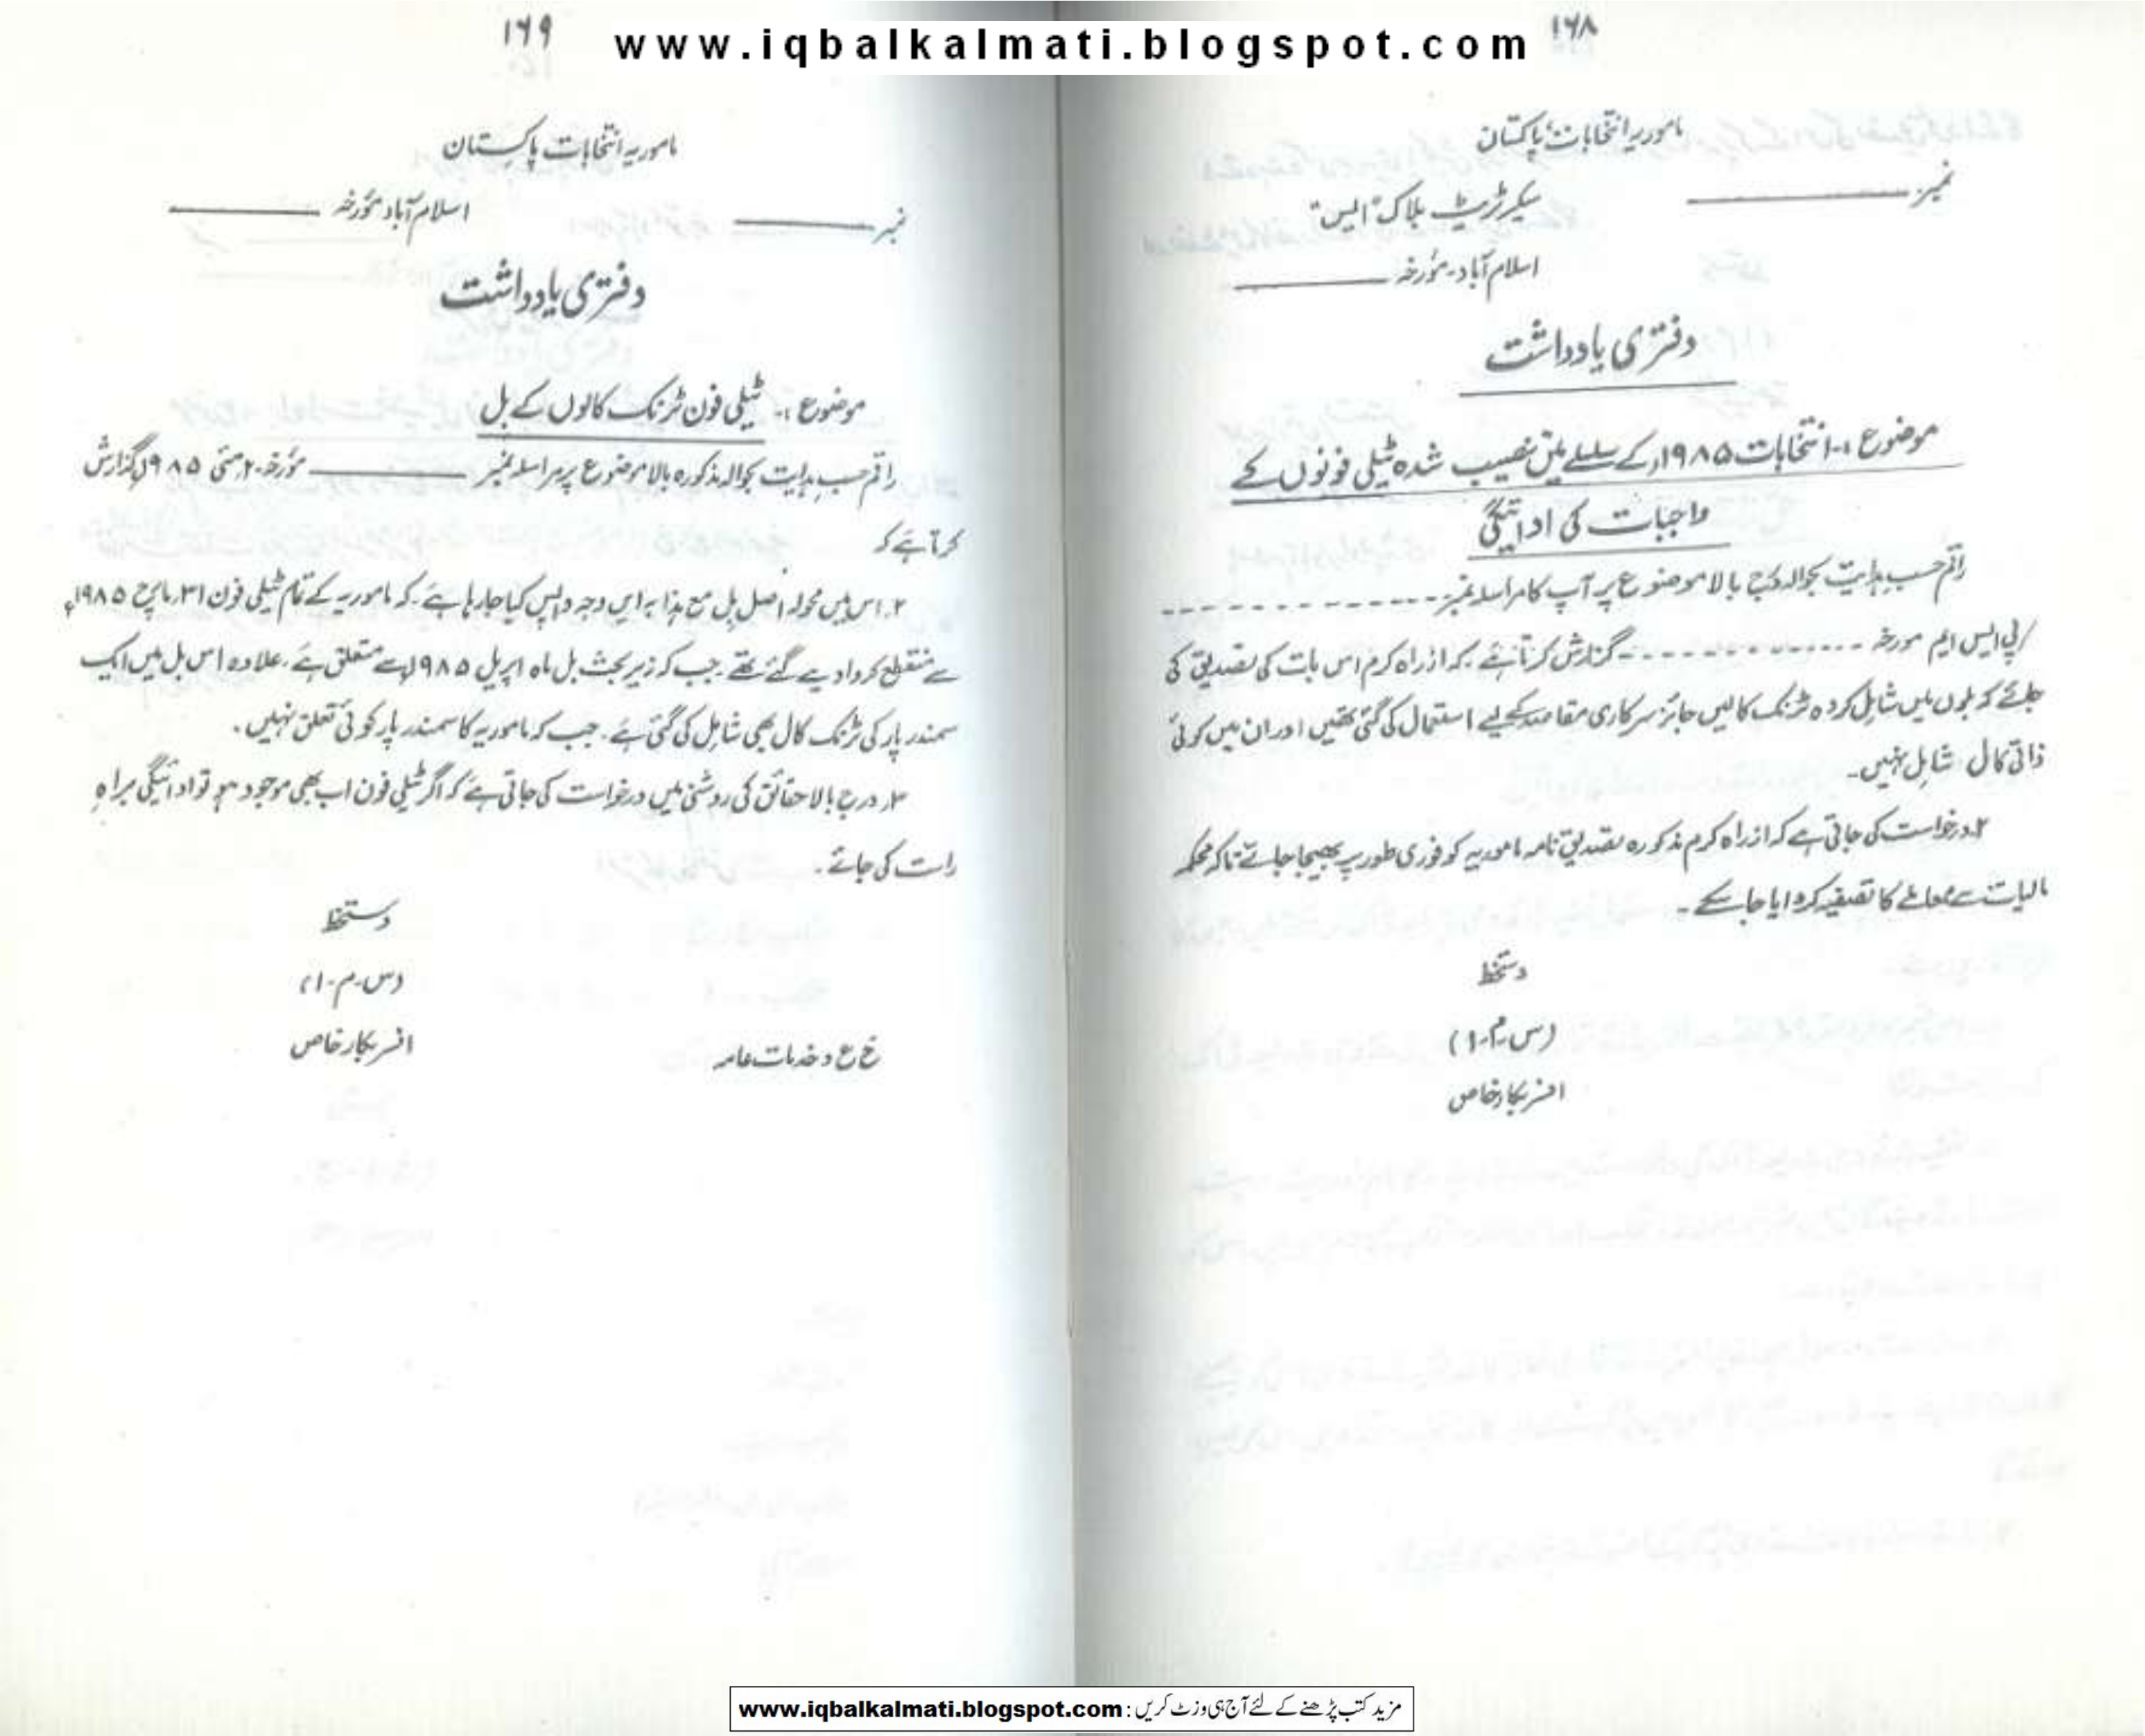 www.iqbalkalmati.blogspot.com
۱۶۸
ماموریہ انتخابات، پاکستان
نمبر
سیکرٹریٹ بلاک "ایس"
اسلام آباد۔ مؤرخہ
دفتری یادداشت
موضوع :۔ انتخابات ۱۹۸۵ء کے سلسلے میں نصیب شدہ ٹیلی فونوں کے
واجبات کی ادائیگی
راقم حسب ہدایت بحوالہ درج بالا موضوع پر آپ کا مراسلہ نمبر
/ پی ایس ایم مورخہ گزارش کرتا ہے۔ کہ از راہ کرم اس بات کی تصدیق کی
جائے کہ بلوں میں شامل کردہ ٹرنک کالیں جائز سرکاری مقاصد کے لیے استعمال کی گئی تھیں اور ان میں کوئی
ذاتی کال شامل نہیں۔
۲۔ درخواست کی جاتی ہے کہ از راہ کرم مذکورہ تصدیق نامہ ماموریہ کو فوری طور پر بھیجا جائے تاکہ محکمہ
مالیات سے معاملے کا تصفیہ کروایا جا سکے۔
دستخط
(س۔م۔۱)
افسر بکار خاص
۱۶۹
ماموریہ انتخابات پاکستان
نمبر اسلام آباد مؤرخہ
دفتری یادداشت
موضوع :۔ ٹیلی فون ٹرنک کالوں کے بل
راقم حسب ہدایت بحوالہ مذکورہ بالا موضوع پر مراسلہ نمبر مؤرخہ ۲۰ مئی ۱۹۸۵ء گزارش
کرتا ہے کہ
۲۔ اس میں محولہ اصل بل مع ہذا بہ ایں وجہ واپس کیا جا رہا ہے۔ کہ ماموریہ کے تمام ٹیلی فون ۳۱ مارچ ۱۹۸۵ء
سے منقطع کروا دیے گئے تھے۔ جب کہ زیر بحث بل ماہ اپریل ۱۹۸۵ء سے متعلق ہے۔ علاوہ اس بل میں ایک
سمندر پار کی ٹرنک کال بھی شامل کی گئی ہے۔ جب کہ ماموریہ کا سمندر پار کوئی تعلق نہیں۔
۳۔ درج بالا حقائق کی روشنی میں درخواست کی جاتی ہے کہ اگر ٹیلی فون اب بھی موجود ہو تو ادائیگی براہ
راست کی جائے۔
دستخط
(س۔م۔۱)
افسر بکار خاص
خ ع و خدمات عامہ
مزید کتب پڑھنے کے لئے آج ہی وزٹ کریں : www.iqbalkalmati.blogspot.com